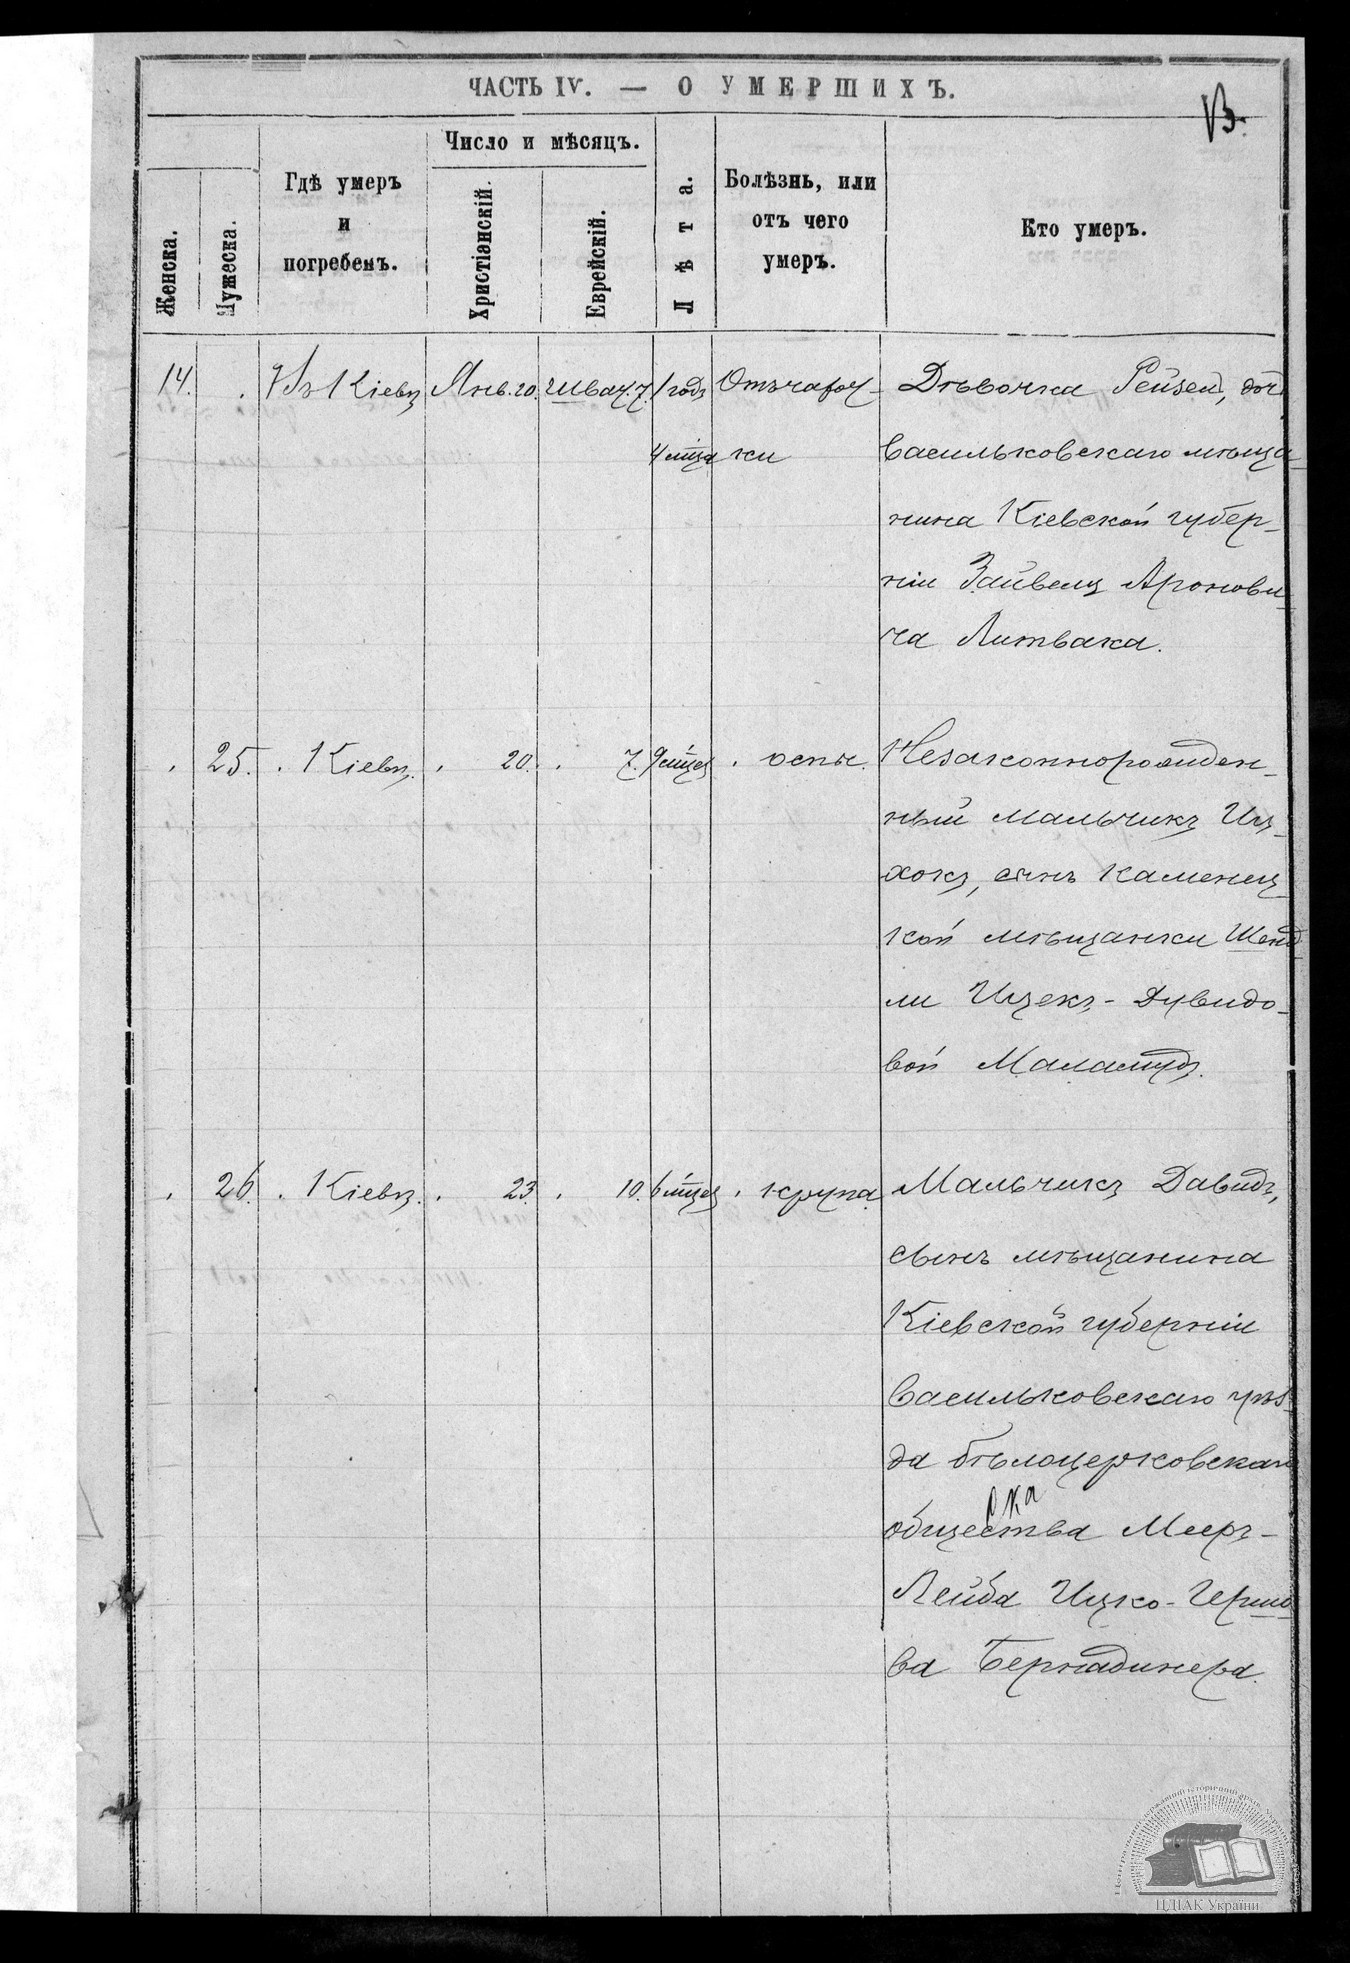 ЧАСТЬ IV. — О УМЕРШИХЪ.
Женска.
Мужеска.
Гдѣ умеръ
и
погребенъ.
Число и мѣсяцъ.
Христіанскій.
Еврейскій.
Лѣта.
Болѣзнь, или
отъ чего
умеръ.
Кто умеръ.
14. Въ Кіевѣ Янв. 20. Шват. 7. 1 годъ Дѣвочка Рейзел, доч
4 мѣца ки Васильковскаго мѣща-
нина Кіевской губер-
ніи Зайвель Аронови-
ча Литвака.
25. Кіевѣ. 20. 7. 9 мѣцев оспы. Незаконнорожден-
ный мальчикъ Иц-
хокъ, сынъ Каменец-
кой мѣщанки Шенд
ли Ицекъ-Дувидо-
вой Маламудъ.
26. Кіевѣ. 23. 10. 6 мѣцев крупа Мальчикъ Давидъ,
сынъ мѣщанина
Кіевской губерніи
Васильковскаго уѣз-
да бѣлоцерковскаго
общества Меер-
Лейба Ицко-Гершо
ва Бернадинера.
ЦДІАК України